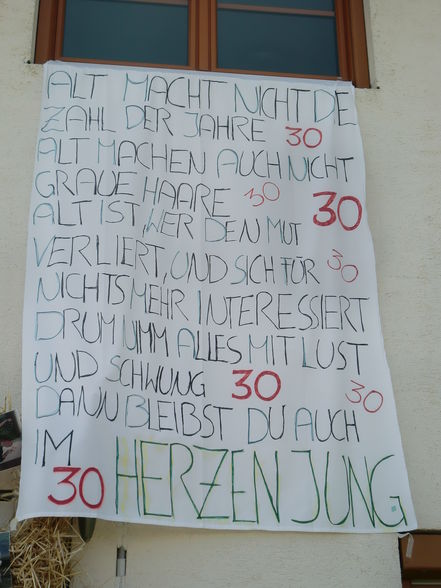 ALT MACHT NICHT DE
ZAHL DER JAHRE 30
ALT MACHEN AUCH NICHT
GRAUE HAARE 30 30
ALT IST, WER DEN MUT
VERLIERT, UND SICH FÜR 30
NICHTS MEHR INTERESSIERT
DRUM NIMM ALLES MIT LUST
UND SCHWUNG 30 30
DANN BLEIBST DU AUCH
IM
30 HERZEN JUNG